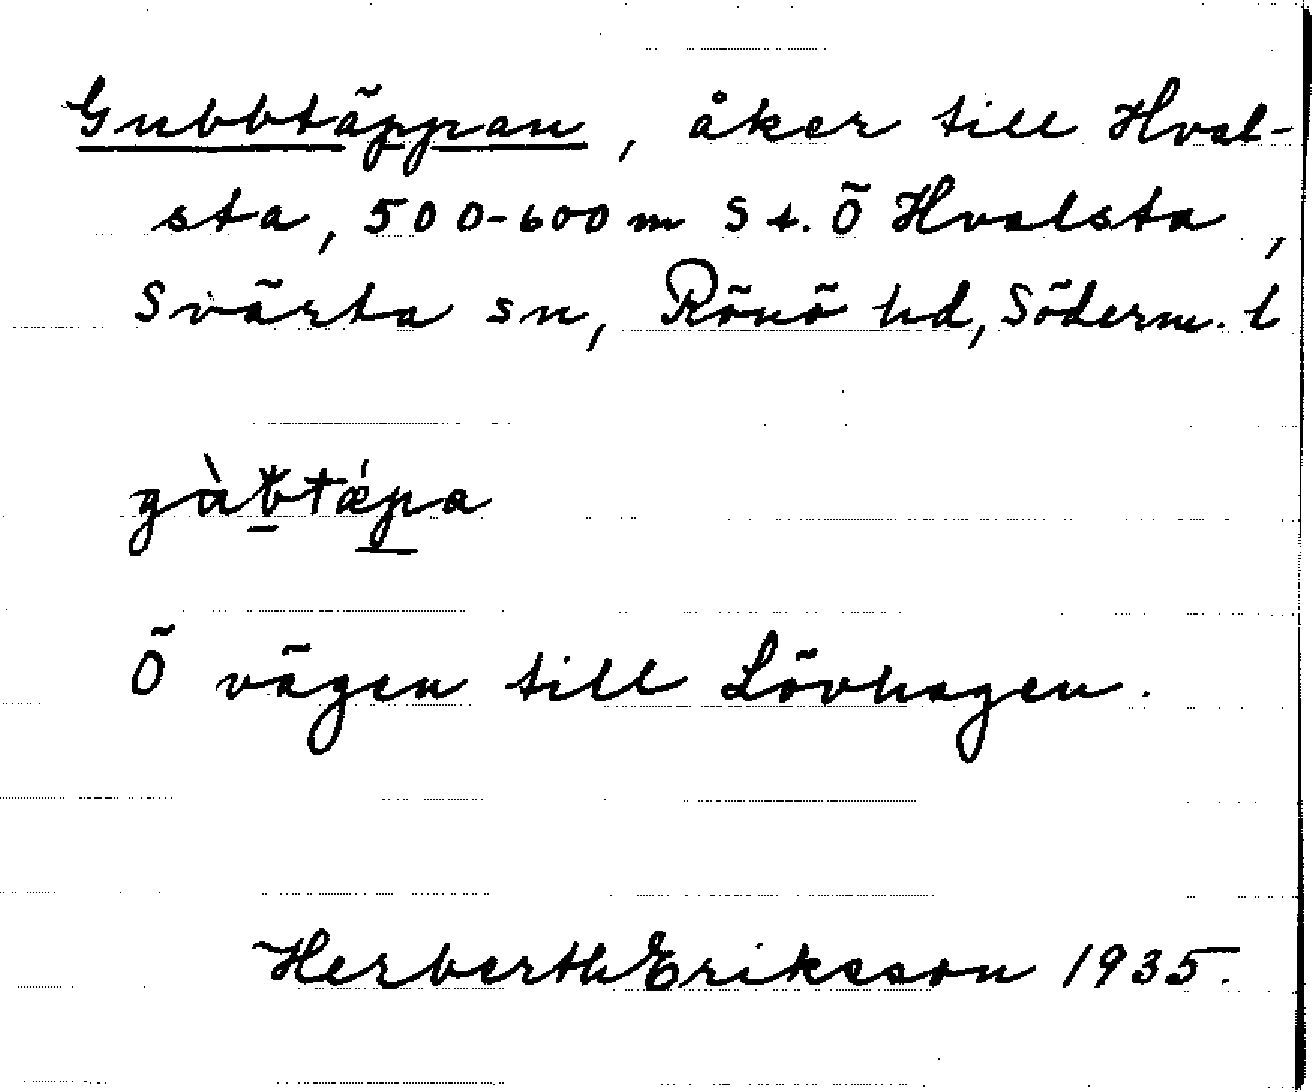 Gubbtäppan, åker till Hval-
sta, 500-600 m S t. Ö Hvalsta,
Svärta sn, Rönö hd, Söderm. l
Ö vägen till Lövhagen.
Herberth Eriksson 1935.